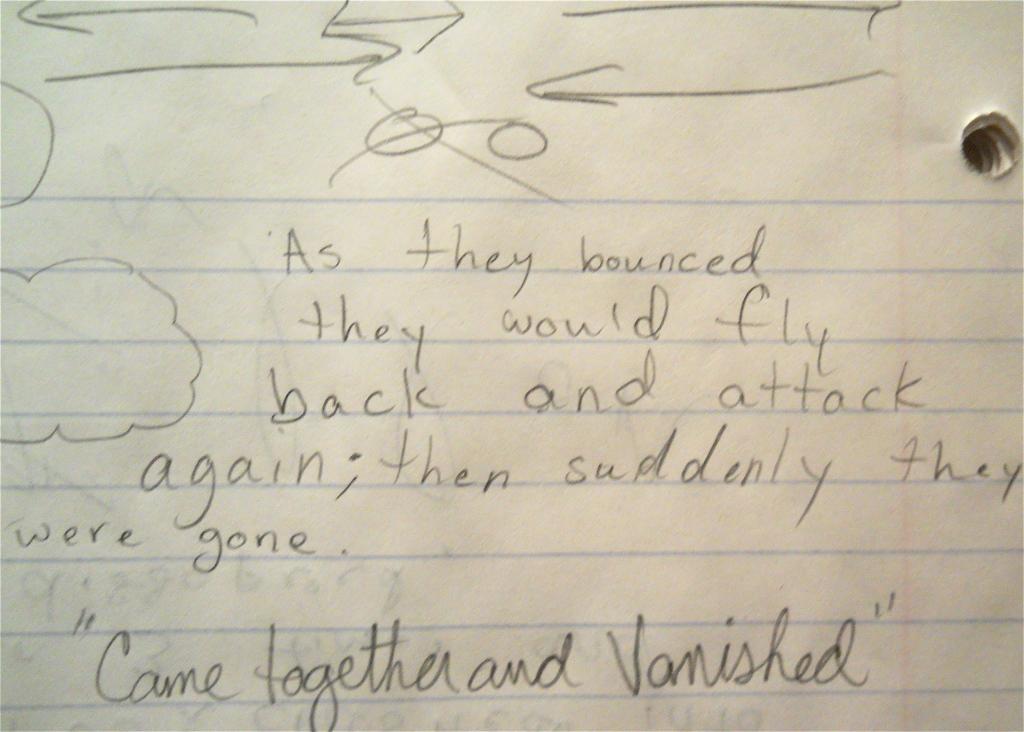 As they bounced
they would fly
back and attack
again; then suddenly they
were gone.
"Came together and Vanished"